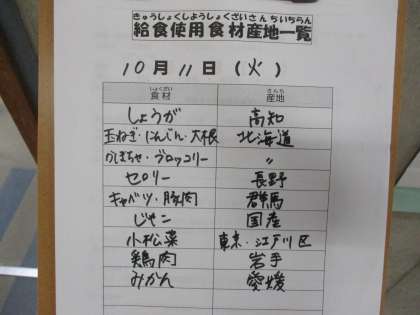 きゅうしょくしようしょくざいさんちいちらん
給食使用食材産地一覧
10月11日(火)
しょくざい さんち
食材 産地
しょうが 高知
玉ねぎ・にんじん・大根 北海道
かぼちゃ・ブロッコリー 〃
セロリー 長野
キャベツ・豚肉 群馬
じゃこ 国産
小松菜 東京・江戸川区
鶏肉 岩手
みかん 愛媛